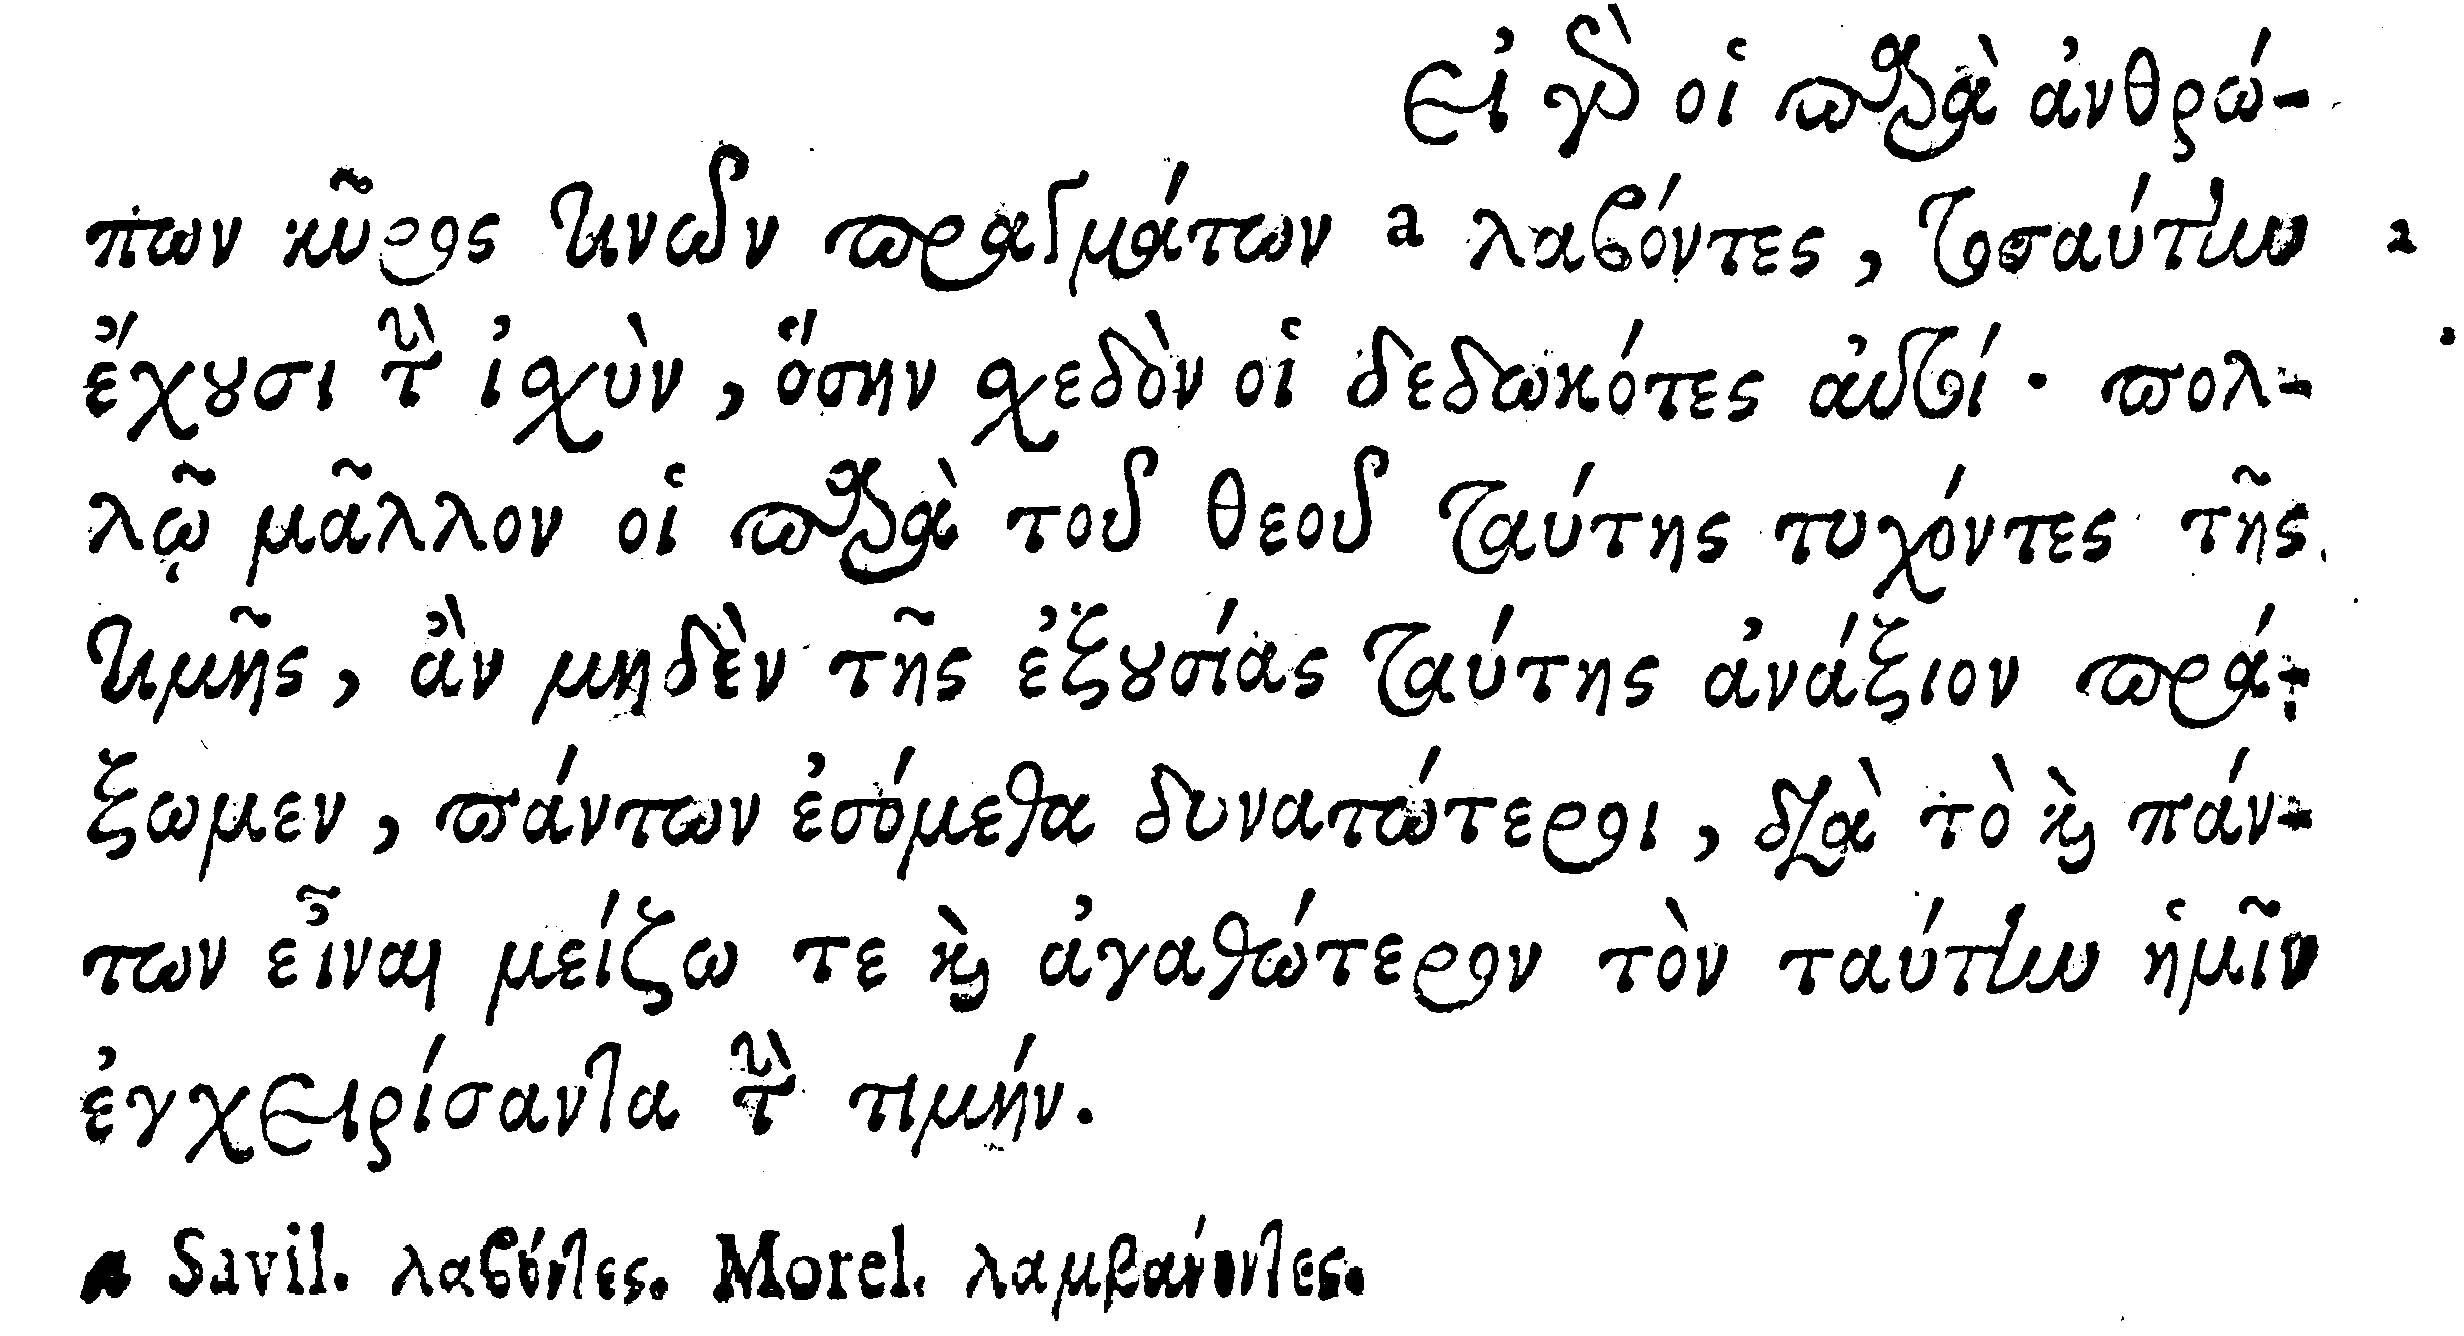 Εἰ γὰρ οἱ παρὰ ἀνθρώ-
πων κῦρος τινῶν πραγμάτων a λαβόντες, τοσαύτην a
ἔχουσι τὴν ἰσχὺν, ὅσην σχεδὸν οἱ δεδωκότες αὐτοί· πολ-
λῷ μᾶλλον οἱ παρὰ τοῦ θεοῦ ταύτης τυχόντες τῆς
τιμῆς, ἂν μηδὲν τῆς ἐξουσίας ταύτης ἀνάξιον πρά-
ξωμεν, πάντων ἐσόμεθα δυνατώτεροι, διὰ τὸ καὶ πάν-
των εἶναι μείζω τε καὶ ἀγαθώτερον τὸν ταύτην ἡμῖν
ἐγχειρίσαντα τὴν τιμήν.
a Savil. λαβόντες. Morel. λαμβάνοντες.